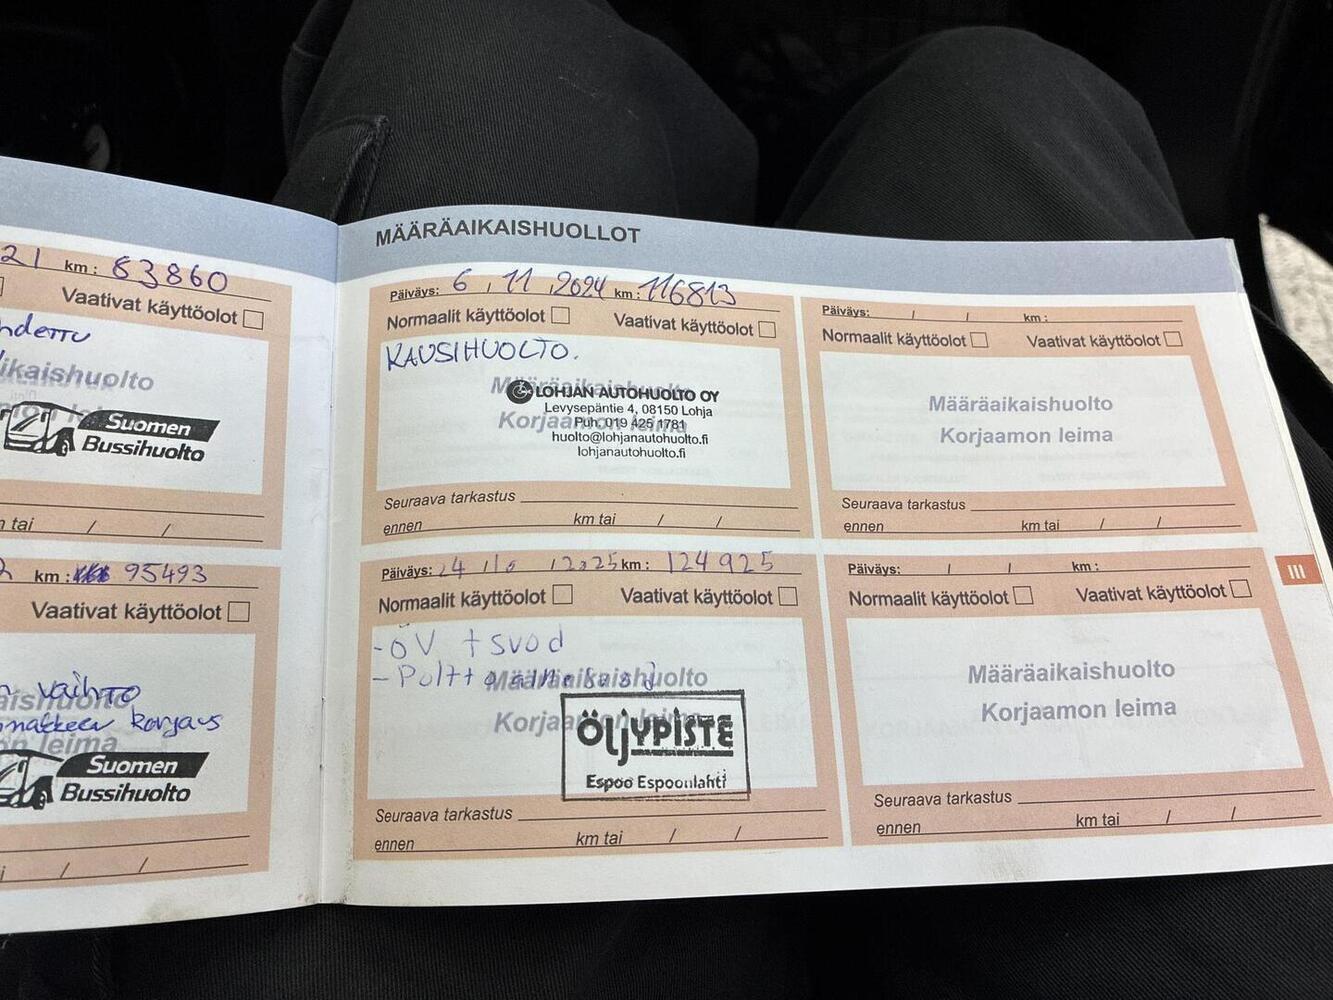 21 km: 83860
Vaativat käyttöolot
Määräaikaishuolto
Suomen
Bussihuolto
km tai / /
km: 95493
Vaativat käyttöolot
vaihto
korjaus
Korjaamon leima
Suomen
Bussihuolto
/ /
MÄÄRÄAIKAISHUOLLOT
Päiväys: 6 . 11 . 2024 km: 116813
Normaalit käyttöolot Vaativat käyttöolot
KAUSIHUOLTO.
Määräaikaishuolto
LOHJAN AUTOHUOLTO OY
Levysepäntie 4, 08150 Lohja
Korjaamon leima
Puh. 019 425 1781
huolto@lohjanautohuolto.fi
lohjanautohuolto.fi
Seuraava tarkastus
ennen km tai / /
Päiväys: / / km:
Normaalit käyttöolot Vaativat käyttöolot
Määräaikaishuolto
Korjaamon leima
Seuraava tarkastus
ennen km tai / /
Päiväys: 2025 km: 124925
Normaalit käyttöolot Vaativat käyttöolot
- ÖV + svod
- Määräaikaishuolto
Korjaamon leima
ÖLJYPISTE
Espoo Espoonlahti
Seuraava tarkastus
ennen km tai / /
Päiväys: / / km:
Normaalit käyttöolot Vaativat käyttöolot
Määräaikaishuolto
Korjaamon leima
Seuraava tarkastus
ennen km tai / /
III